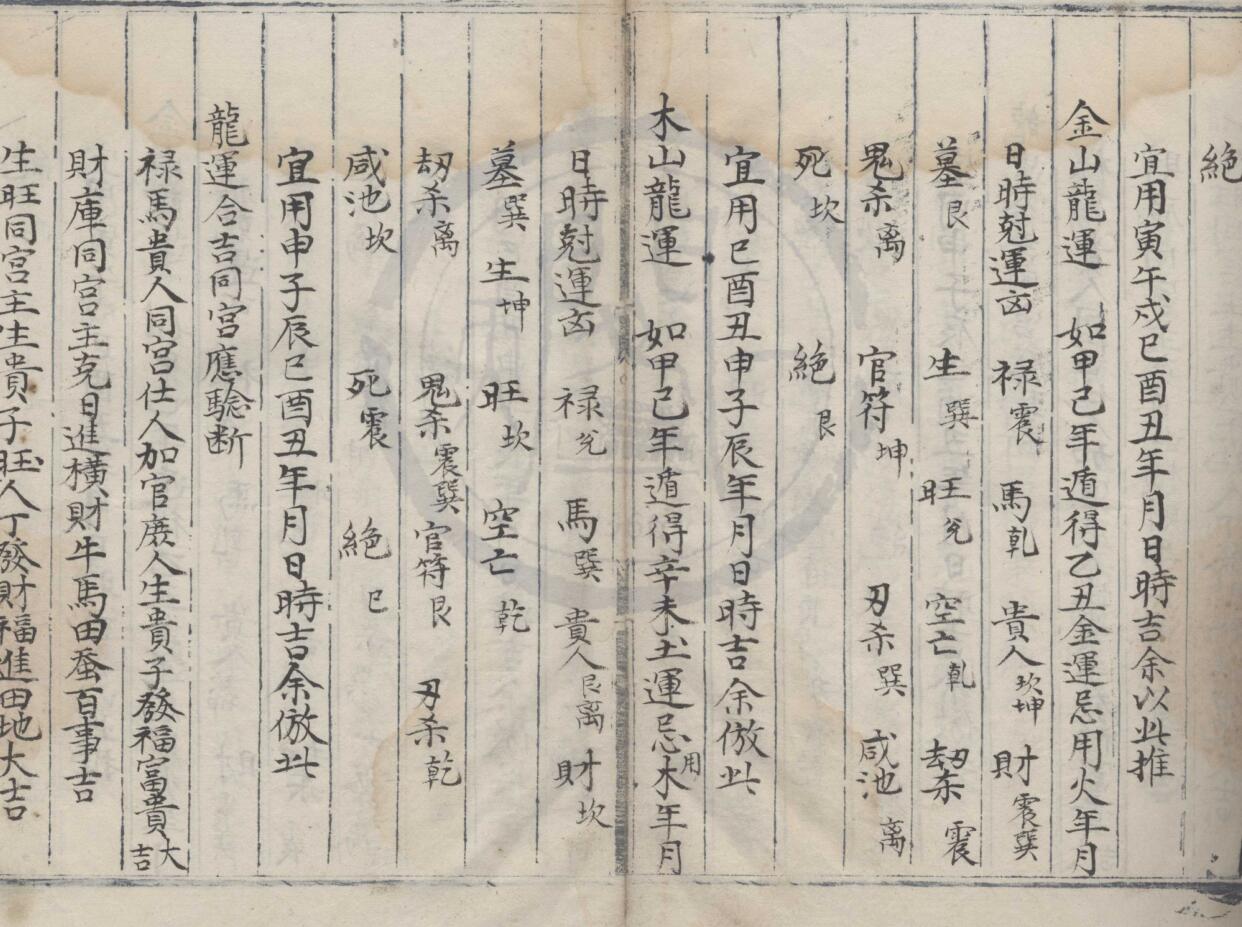 絶
宜用寅午戍巳酉丑年月日時吉余以此推
金山龍運 如甲己年遁得乙丑金運忌用火年月
日時尅運凶 禄震 馬乹 貴人坎坤 財震巽
墓艮 生巽 旺兌 空亡乹 刼杀震
鬼杀离 官符坤 刃杀巽 咸池离
死坎 絶艮
宜用巳酉丑申子辰年月日時吉余倣此
木山龍運 如甲己年遁得辛未土運忌用木年月
日時尅運凶 禄兌 馬巽 貴人艮离 財坎
墓巽 生坤 旺坎 空亡乾
刼杀离 鬼杀震巽 官符艮 刃杀乾
咸池坎 死震 絶巳
宜用申子辰巳酉丑年月日時吉余倣此
龍運合吉同宮應驗断
禄馬貴人同宮仕人加官庻人生貴子發福富貴大吉
財庫同宮主克日進橫財牛馬田蚕百事吉
生旺同宮主生貴子旺人丁發財福進田地大吉